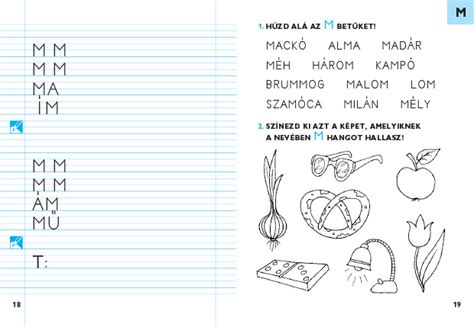 M M
M M
MA
ÍM
M M
M M
ÁM
MŰ
T:
18
M
1. HÚZD ALÁ AZ M BETŰKET!
MACKÓ ALMA MADÁR
MÉH HÁROM KAMPÓ
BRUMMOG MALOM LOM
SZAMÓCA MILÁN MÉLY
2. SZÍNEZD KI AZT A KÉPET, AMELYIKNEK
A NEVÉBEN M HANGOT HALLASZ!
19